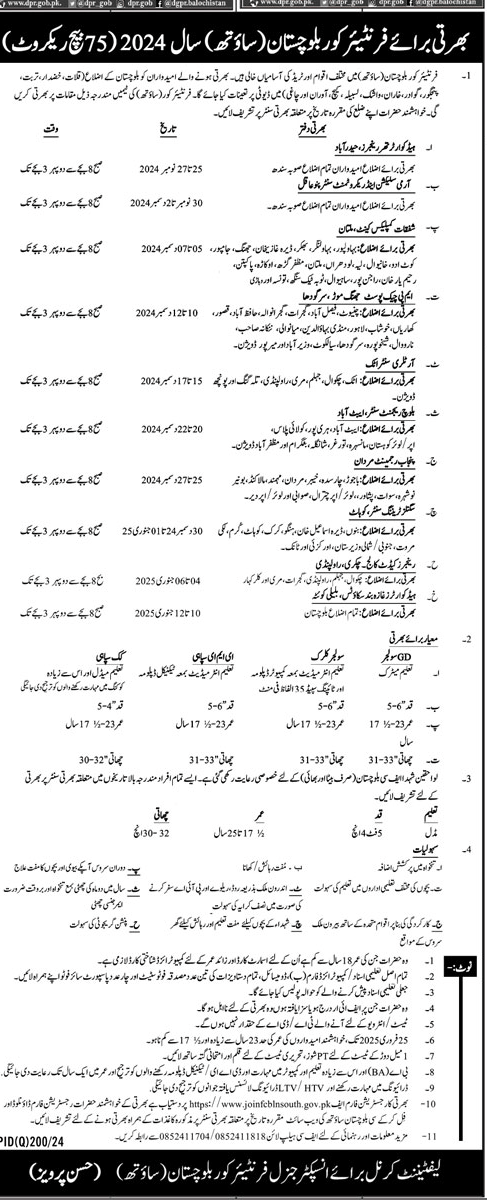 www.dpr.gob.pk. dpr_gob dpr.gob @dgpr.balochistan
بھرتی برائے فرنٹیئر کور بلوچستان (ساؤتھ) سال 2024 (75 بیچ ریکروٹ)
1- فرنٹیئر کور بلوچستان (ساؤتھ) میں مختلف اقوام اور ٹریڈ کی آسامیاں خالی ہیں۔ بھرتی ہونے والے امیدواران کو بلوچستان کے اضلاع (قلات، خضدار، تربت،
پنجگور، گوادر، خاران، واشک، لسبیلہ، کیچ، آواران اور چاغی) میں ڈیوٹی پر تعینات کیا جائے گا۔ فرنٹیئر کور (ساؤتھ) کی ٹیمیں مندرجہ ذیل مقامات پر بھرتی کریں
گی۔ خواہشمند حضرات اپنے ضلع کی مقررہ تاریخ پر متعلقہ بھرتی سنٹر پر تشریف لائیں۔
بھرتی دفتر تاریخ وقت
ا۔ ہیڈ کوارٹر تھر رینجرز، حیدرآباد
بھرتی برائے اضلاع امیدواران تمام اضلاع صوبہ سندھ 25 تا 27 نومبر 2024 صبح 8 بجے سے دوپہر 3 بجے تک
ب۔ آرمی سلیکشن اینڈ ریکروٹمنٹ سنٹر پنوعاقل
بھرتی برائے اضلاع امیدواران تمام اضلاع صوبہ سندھ۔ 30 نومبر تا 2 دسمبر 2024 صبح 8 بجے سے دوپہر 3 بجے تک
پ۔ شفقات کمپلیکس کینٹ، ملتان
بھرتی برائے اضلاع: بہاولپور، بہاولنگر، بھکر، ڈیرہ غازیخان، جھنگ، جامپور، 05 تا 07 دسمبر 2024 صبح 8 بجے سے دوپہر 3 بجے تک
کوٹ ادو، خانیوال، لیہ، لودھراں، ملتان، مظفر گڑھ، اوکاڑہ، پاکپتن،
رحیم یار خان، راجن پور، ساہیوال، ٹوبہ ٹیک سنگھ، تونسہ اور وہاڑی
ت۔ ایم پی چیک پوسٹ جھنگ موڑ، سرگودھا
بھرتی برائے اضلاع: چنیوٹ، فیصل آباد، گجرات، گجرانوالہ، حافظ آباد، قصور، 10 تا 12 دسمبر 2024 صبح 8 بجے سے دوپہر 3 بجے تک
کھاریاں، خوشاب، لاہور، منڈی بہاؤالدین، میانوالی، ننکانہ صاحب،
نارووال، شیخوپورہ، سرگودھا، سیالکوٹ، وزیر آباد اور میر پور ڈویژن۔
ٹ۔ آرٹلری سنٹر اٹک
بھرتی برائے اضلاع: اٹک، چکوال، جہلم، مری، راولپنڈی، تلہ گنگ اور پونچھ 15 تا 17 دسمبر 2024 صبح 8 بجے سے دوپہر 3 بجے تک
ڈویژن۔
ث۔ بلوچ رجمنٹ سنٹر، ایبٹ آباد
بھرتی برائے اضلاع: ایبٹ آباد، ہری پور، کولائی پلاس، 20 تا 22 دسمبر 2024 صبح 8 بجے سے دوپہر 3 بجے تک
اپر/لوئر کوہستان، مانسہرہ، تورغر، شانگلہ، بٹگرام اور مظفر آباد ڈویژن۔
ج۔ پنجاب رجمنٹ مردان
بھرتی برائے اضلاع: باجوڑ، چارسدہ، خیبر، مردان، مہمند، مالاکنڈ، بونیر 25 تا 27 دسمبر 2024 صبح 8 بجے سے دوپہر 3 بجے تک
نوشہرہ، سوات، پشاور، لوئر/اپر چترال، صوابی اور لوئر/اپر دیر۔
چ۔ سگنلز ٹریننگ سنٹر، کوہاٹ
بھرتی برائے اضلاع: بنوں، ڈیرہ اسماعیل خان، ہنگو، کرک، کوہاٹ، کرم، لکی 30 دسمبر 24 تا 01 جنوری 25 صبح 8 بجے سے دوپہر 3 بجے تک
مروت، جنوبی/شمالی وزیرستان، اورکزئی اور ٹانک۔
ح۔ رینجرز کیڈٹ کالج، چکری، راولپنڈی
بھرتی برائے اضلاع: چکوال، جہلم، راولپنڈی، گجرات، مری اور کلر کہار 04 تا 06 جنوری 2025 صبح 8 بجے سے دوپہر 3 بجے تک
خ۔ ہیڈ کوارٹرز غازہ بند سکاؤٹس، بلیلی کوئٹہ
بھرتی برائے اضلاع: تمام اضلاع بلوچستان 10 تا 12 جنوری 2025 صبح 8 بجے سے دوپہر 3 بجے تک
2- معیار برائے بھرتی
GD سولجر سولجر کلرک ای ایم ای سپاہی کک سپاہی
ا۔ تعلیم میٹرک تعلیم انٹرمیڈیٹ بمعہ کمپیوٹر ڈپلومہ تعلیم انٹر میڈیٹ بمعہ ٹیکنیکل ڈپلومہ تعلیم مڈل اور اس سے زیادہ
اور ٹائپنگ سپیڈ 35 الفاظ فی منٹ کوکنگ میں مہارت رکھنے والوں کو ترجیح دی جائیگی
ب۔ قد "6-5 قد "6-5 قد "6-5 قد "4-5
پ۔ عمر 23-½ 17 عمر 23-½ 17 سال عمر 23-½ 17 سال عمر 23-½ 17 سال
سال
ت۔ چھاتی "33-31 چھاتی "33-31 چھاتی "33-31 چھاتی "32-30
3- لواحقین شہدا ایف سی بلوچستان (صرف بیٹا اور بھائی) کے لئے خصوصی رعایت رکھی گئی ہے۔ ایسے تمام افراد مندرجہ بالا تاریخوں میں متعلقہ بھرتی سنٹر پر بھرتی
کے لئے تشریف لائیں۔
تعلیم قد عمر چھاتی
مڈل 5 فٹ 4 انچ ½ 17 تا 25 سال 32-30 انچ
4- سہولیات
ا۔ تنخواہ میں پرکشش اضافہ ب۔ مفت رہائش/کھانا پ۔ دوران سروس آپکے بیوی اور بچوں کا مفت علاج
ت۔ بچوں کی مختلف تعلیمی اداروں میں تعلیم کی سہولت ٹ۔ اندرون ملک بذریعہ روڈ، ریلوے اور پی آئی اے سفر کرنے ث۔ سال میں دو ماہ کی چھٹی بمع تنخواہ اور بروقت ضرورت
کی صورت میں نصف کرایہ کی سہولت ایمرجنسی چھٹی
ج۔ کارکردگی کی بنا پر اقوام متحدہ کے ساتھ بیرون ملک چ۔ شہداء کے بچوں کیلئے مفت تعلیم اور رہائش کیلئے گھر ح۔ پنشن گریجویٹی کی سہولت
سروس کے مواقع
نوٹ:-
1- وہ حضرات جن کی عمر 18 سال سے کم ہے اُن کے لئے اسمارٹ کارڈ اور زائد عمر کے لئے کمپیوٹرائزڈ شناختی کارڈ لازمی ہے۔
2- تمام اصل تعلیمی اسناد/کمپیوٹرائزڈ فارم (ب)، ڈومیسائل، تمام دستاویزات کی تین عدد مصدقہ فوٹوسٹیٹ اور چار عدد پاسپورٹ سائز فوٹو اپنے ہمراہ لائیں۔
3- جعلی تعلیمی اسناد پیش کرنے والے کو حوالہ پولیس کیا جائے گا۔
4- وہ حضرات جن پر ایف آئی آر درج ہو یا سزا یافتہ ہوں وہ بھرتی کے لئے نااہل ہوگا۔
5- ٹیسٹ/انٹرویو کے لئے آنے والے ٹی اے/ڈی اے کے حقدار نہیں ہوں گے۔
6- 25 فروری 2025 تک، خواہشمند امیدواروں کی عمر کی حد 23 سال سے زیادہ اور ½ 17 سے کم نہ ہو۔
7- 1 میل دوڑ کے ٹیسٹ کے لئے PT شوز، تحریری ٹیسٹ کے لئے قلم اور امتحانی گتہ ساتھ لائیں۔
8- بی اے (BA) اور اس سے زیادہ تعلیم اور کمپیوٹر میں مہارت اور ڈی اے ای/ٹیکنیکل ڈپلومہ رکھنے والوں کو ترجیح اور عمر میں ایک سال تک رعایت دی جائیگی۔
9- ڈرائیونگ میں مہارت رکھنے اور LTV / HTV ڈرائیونگ لائسنس یافتہ جوانوں کو ترجیح دی جائیگی۔
10- بھرتی کا رجسٹریشن فارم ایف https://www.joinfcblnsouth.gov.pk پر دستیاب ہے بھرتی کے خواہشمند حضرات رجسٹریشن فارم ڈاؤنلوڈ اور
فل کر کے سی بلوچستان ساؤتھ کی ویب سائٹ مقررہ تاریخ پر متعلقہ بھرتی سنٹر پر مذکورہ کاغذات کے ہمراہ بھرتی ہونے کے لئے تشریف لائیں۔
11- مزید معلومات اور رہنمائی کے لئے ایف سی ہیلپ لائن 0852411704/0852411818 سے رابطہ کریں۔
PID(Q)200/24
لیفٹیننٹ کرنل برائے انسپکٹر جنرل فرنٹیئر کور بلوچستان (ساؤتھ) (حسن پرویز)